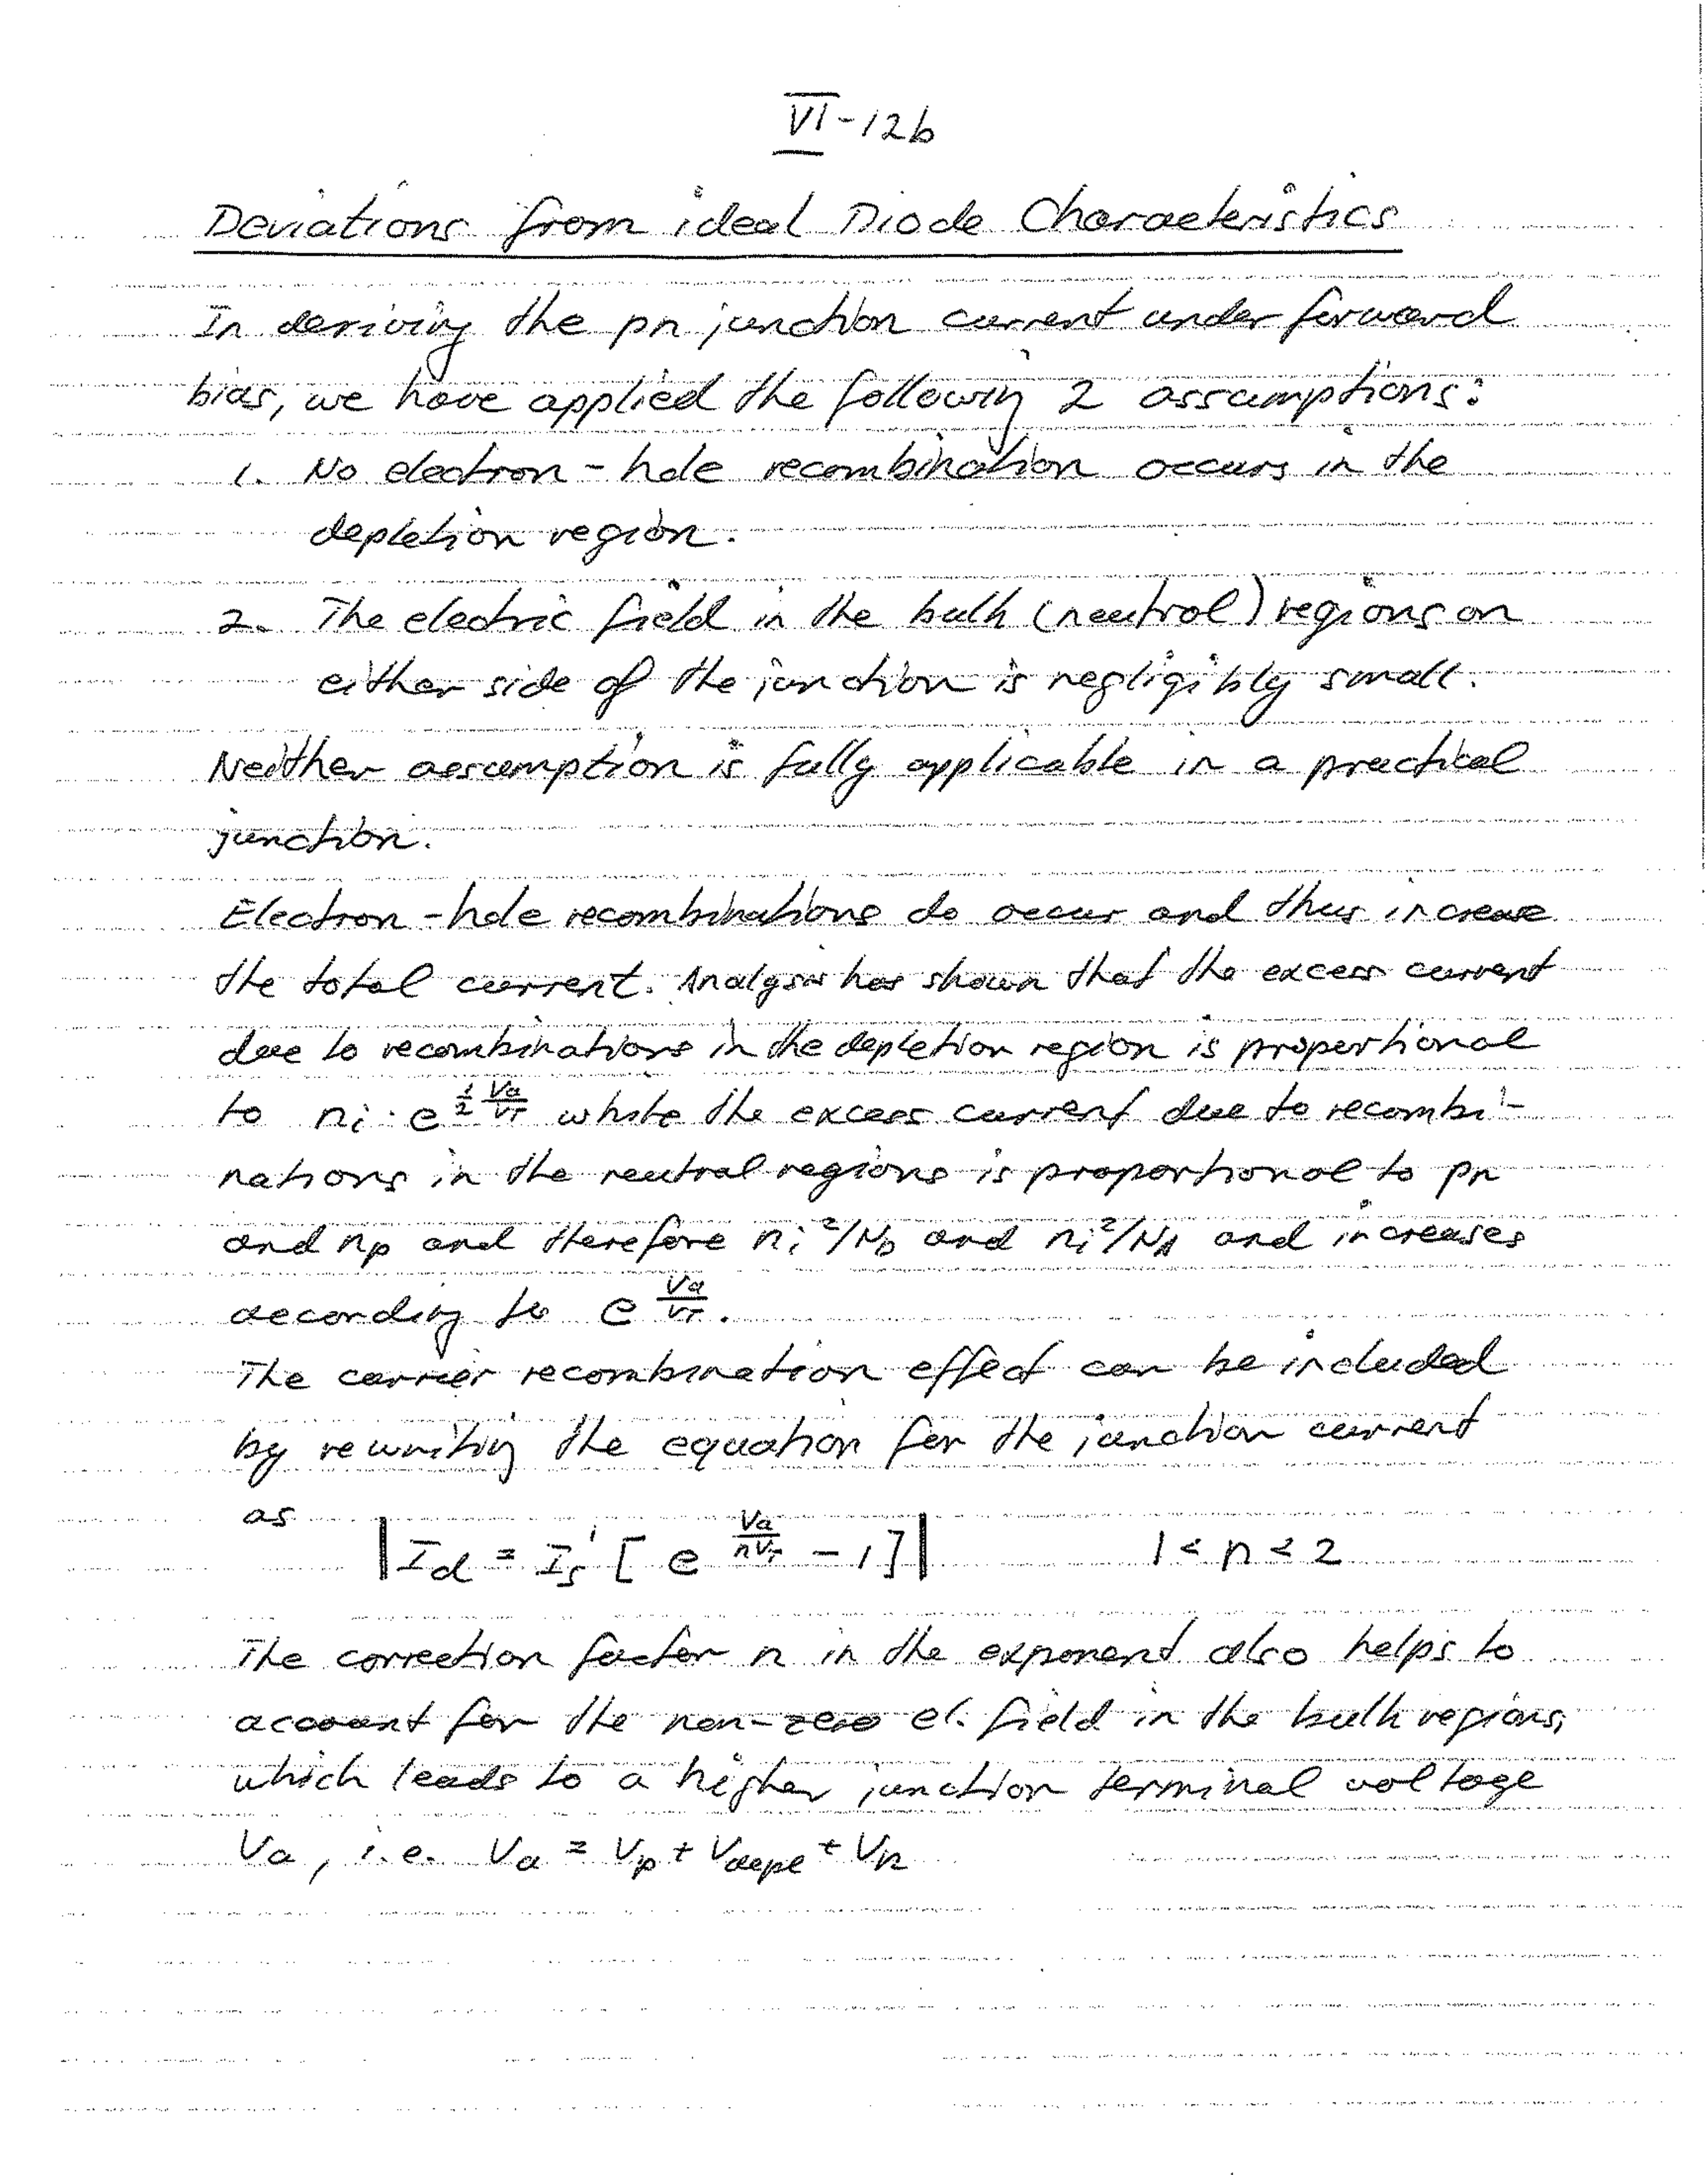 VI-12b
Deviations from ideal Diode Characteristics
In deriving the pn junction current under forward
bias, we have applied the following 2 assumptions:
1. No electron-hole recombination occurs in the
depletion region.
2. The electric field in the bulk (neutral) regions on
either side of the junction is negligibly small.
Neither assumption is fully applicable in a practical
junction.
Electron-hole recombinations do occur and thus increase
the total current. Analysis has shown that the excess current
due to recombinations in the depletion region is proportional
to ni · e^(1/2 Va/VT) while the excess current due to recombi-
nations in the neutral regions is proportional to pn
and np and therefore ni²/ND and ni²/NA and increases
according to e^(Va/VT).
The carrier recombination effect can be included
by rewriting the equation for the junction current
as
|Id = Is' [e^(Va/nVT) - 1]| 1 < n < 2
The correction factor n in the exponent also helps to
account for the non-zero el. field in the bulk regions,
which leads to a higher junction terminal voltage
Va, i.e. Va = Vp + Vdepl + Vn